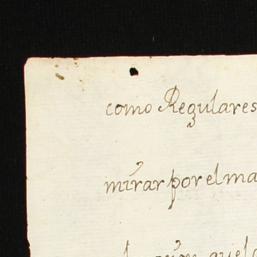 como Regulares
mirar por el ma